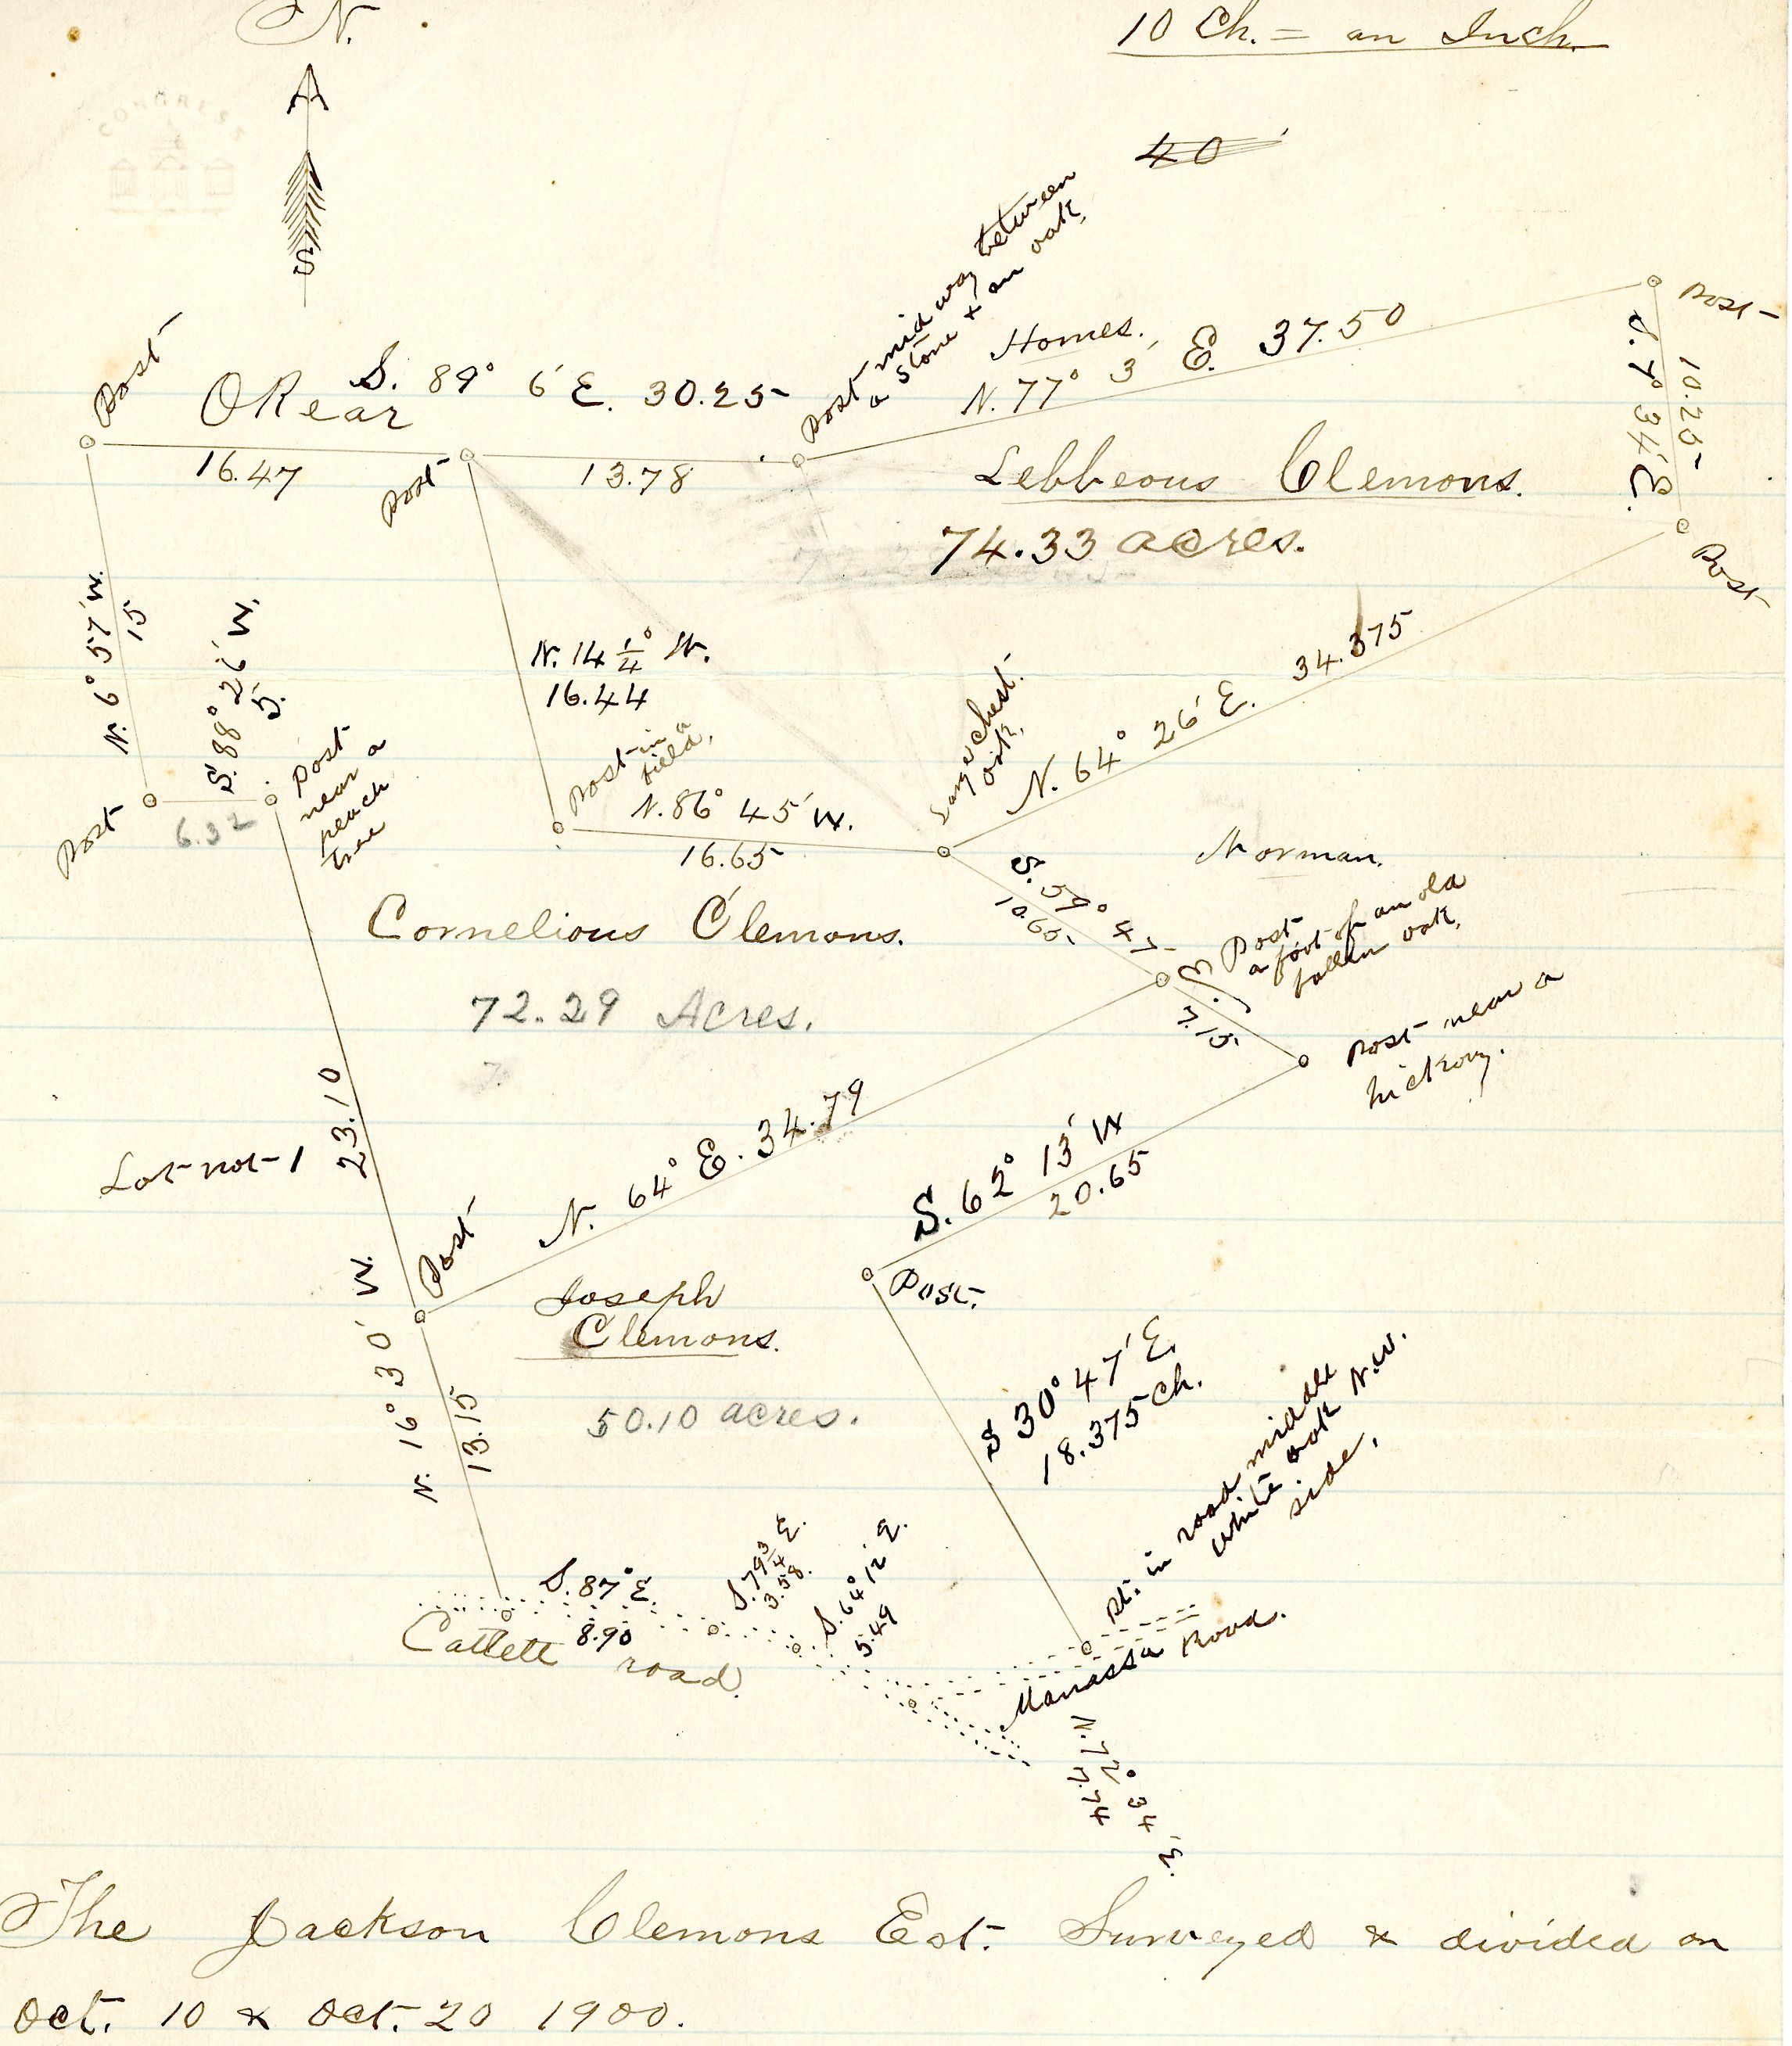 N.
10 Ch. = an Inch.
40
S
Post
ORear
S. 89° 6' E. 30.25
16.47
Post
13.78
Post mid way between
a stone & an oak,
Homes.
N. 77° 3' E. 37.50
Post
S. 7° 34' E.
10.25
Post
Lebbeous Clemons.
74.33 acres.
N. 6° 57' W.
15
S. 88° 26' W.
5.
Post
6.32
Post
near a
peach
tree
N. 14 1/4° W.
16.44
Post in a
field,
N. 86° 45' W.
16.65
Large Chest.
oak,
N. 64° 26' E. 34.375
Morman.
S. 59° 47' E.
10.65
7.15
Post
a foot of an old
fallen oak,
Post near a
hickory.
Cornelious Clemons.
72.29 Acres.
7.
Lot not 1
23.10
N. 64° E. 34.79
S. 62° 13' W
20.65
Post
Post.
N. 16° 30' W.
13.15
Joseph
Clemons.
50.10 acres.
S 30° 47' E.
18.375 Ch.
Pt. in road middle
white oak N.W.
side,
S. 87° E.
8.90
S. 79 3/4 E.
3.58.
S. 64° 12' E.
5.49
Cattett road.
Manassa Road.
N. 72° 34' E.
7.74
The Jackson Clemons Est. Surveyed & divided on
Oct. 10 & Oct. 20 1900.